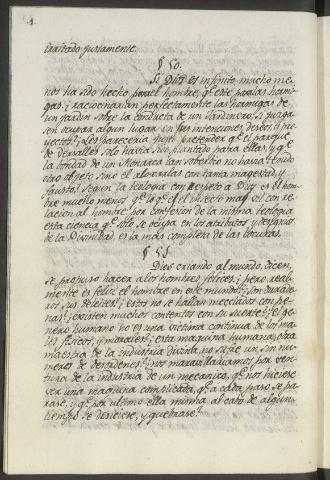 irritado justamente.
§ 50.
Si Dios es infinito, mucho me-
nos ha sido hecho por el hombre, qe. este por las hormi-
gas. ¿ raciocinarian perfectamente las hormigas de
un jardin sobre la conducta de un Jardinero si juga-
sen ocupar algun lugar en sus intenciones, deseos, y pro-
yectos? ¿ Les pareceria justo pretender qe. el parque
de Versalles solo havia sido plantado para ellas, y qe.
la bondad de un Monarca tan soberbio no havia tenido
otro objeto sino el alojarlas con tanta magestad, y
fausto? Segun la teologia con respeto a Dios es el hom-
bre mucho menos qe. lo qe. es el insecto mas vil con re-
lacion al hombre: por confesion de la misma teologia
esta ciencia qe. solo se ocupa en los atributos, y designios
de la Divinidad, es la más completa de las locuras.
§ 51.
Dios criando al mundo, dicen,
se propuso hacer a los hombres felices; pero real-
mente es felíz el hombre en este mundo? ¿ son durade-
ros sus deleites? ¿ estos no se hallan mezclados con pe-
nas? ¿ existen muchos contentos con su suerte? ¿ el ge-
nero humano no es una victima continua de los ma-
les fisicos, y morales? ¿ esta maquina humana, obra
maestra de la industria divina, no sufre un sin nu-
mero de desordenes? ¿ nos maravillariamos por ven-
tura de la industria de un mecanico, qe. nos hiciese
ver una maquina complicada, qe. a cada paso se pa-
rase, y qe. por ultimo ella misma al cabo de algun
tiempo se deshiciese, y quebrase?